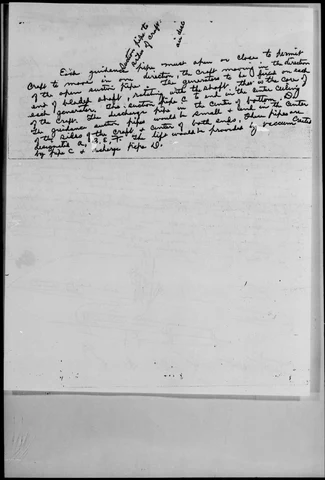 suction pipe to
ends of craft.
Each guidance pipe must open or close to permit
craft to move in one direction, the craft moving in the direction
of the open suction pipe. The generators to be fixed on each
end of bladed shaft, rotating with the shaft, that is the core of
each generator. The suction pipe C to end in the outer
of the craft. The discharge pipe in the center of bottom, D.
The guidance suction pipes would be small & end in the center
of the sides of the craft & center of both ends, these pipes are
designated A, B, E, F. The lift would be provided by vacuum
by pipe C & discharge pipe D.